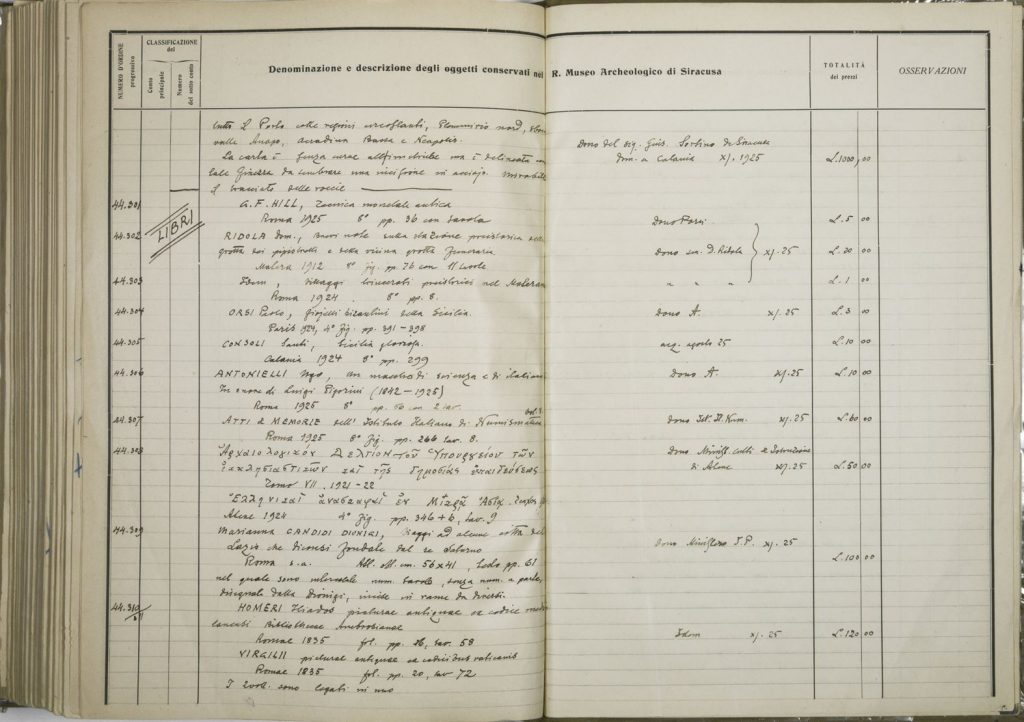 NUMERO D'ORDINE progressivo
CLASSIFICAZIONE del
Conto principale
Numero del sotto conto
Denominazione e descrizione degli oggetti conservati nel R. Museo Archeologico di Siracusa
TOTALITÀ dei prezzi
OSSERVAZIONI
tutto il Porto colle regioni circostanti, Plemmirio nord,
valle Anapo, Acradina Bassa e Neapolis. Dono del sig. Gius. Sortino di Siracusa
La carta è senza è delineata dom. a Catania XI. 1925 L. 1000,00
tale finezza da sembrare una incisione in acciaio.
il tracciato delle roccie
44.301 G. F. HILL, Tecnica monetale antica
LIBRI
Roma 1925 8° pp. 36 con tavola Dono Orsi L. 5 00
44.302 RIDOLA Dom., Brevi note sulla stazione preistorica della
grotta dei pipistrelli e della vicina grotta funeraria Dono sen. D. Ridola XI. 25 L. 20 00
Matera 1912 8° fig. pp. 76 con 11 tavole
44.303 Idem, villaggi trincerati preistorici nel Materano " " " L. 1 00
Roma 1924. 8° pp. 8.
44.304 ORSI Paolo, gioielli bizantini della Sicilia. Dono A. XI. 25 L. 3 00
Paris 1924, 4° fig. pp. 391-398
44.305 CONSOLI Santi, Sicilia gloriosa. acq. agosto 25 L. 10 00
Catania 1924 8° pp. 299
44.306 ANTONIELLI Ugo, Un maestro di scienza e di italian Dono A. XI. 25 L. 10 00
In onore di Luigi Pigorini (1842-1925)
Roma 1925 8° pp. 60 con 2 tav.
44.307 ATTI e MEMORIE dell'Istituto Italiano di Numismatica vol. Dono Ist. It. Num. XI. 25 L. 60 00
Roma 1925 8° fig. pp. 266 tav. 8.
44.308 Ἀρχαιολογικόν Δελτίον τοῦ Ὑπουργείου τῶν Dono Minist. Culti e Istruzione
ἐκκλησιαστικῶν καὶ τῆς δημοσίας ἐκπαιδεύσεως di Atene XI. 25 L. 50 00
Tomo VII. 1921-22
Ἑλληνικαὶ ἀνασκαφαὶ ἐν Μικρᾷ Ἀσίᾳ.
Atene 1924 4° fig. pp. 346+6, tav. 9
44.309 Marianna CANDIDI DIONIGI, Viaggi ad alcune città del
Lazio che diconsi fondate dal re Saturno Dono Ministero I.P. XI. 25
Roma s.a. Alb. obl. cm. 56x41, testo pp. 61 L. 100 00
nel quale sono intercalate num. tavole, senza num. a parte,
disegnate dalla Dionigi, incise in rame da diversi.
44.310/311 HOMERI Iliados picturae antiquae ex codice medio-
lanensi Bibliothecae Ambrosianae Idem XI. 25 L. 120 00
Romae 1835 fol. pp. 36, tav. 58
VIRGILII picturae antiquae ex codicibus vaticanis
Romae 1835 fol. pp. 20, tav 72
I 2 voll. sono legati in uno